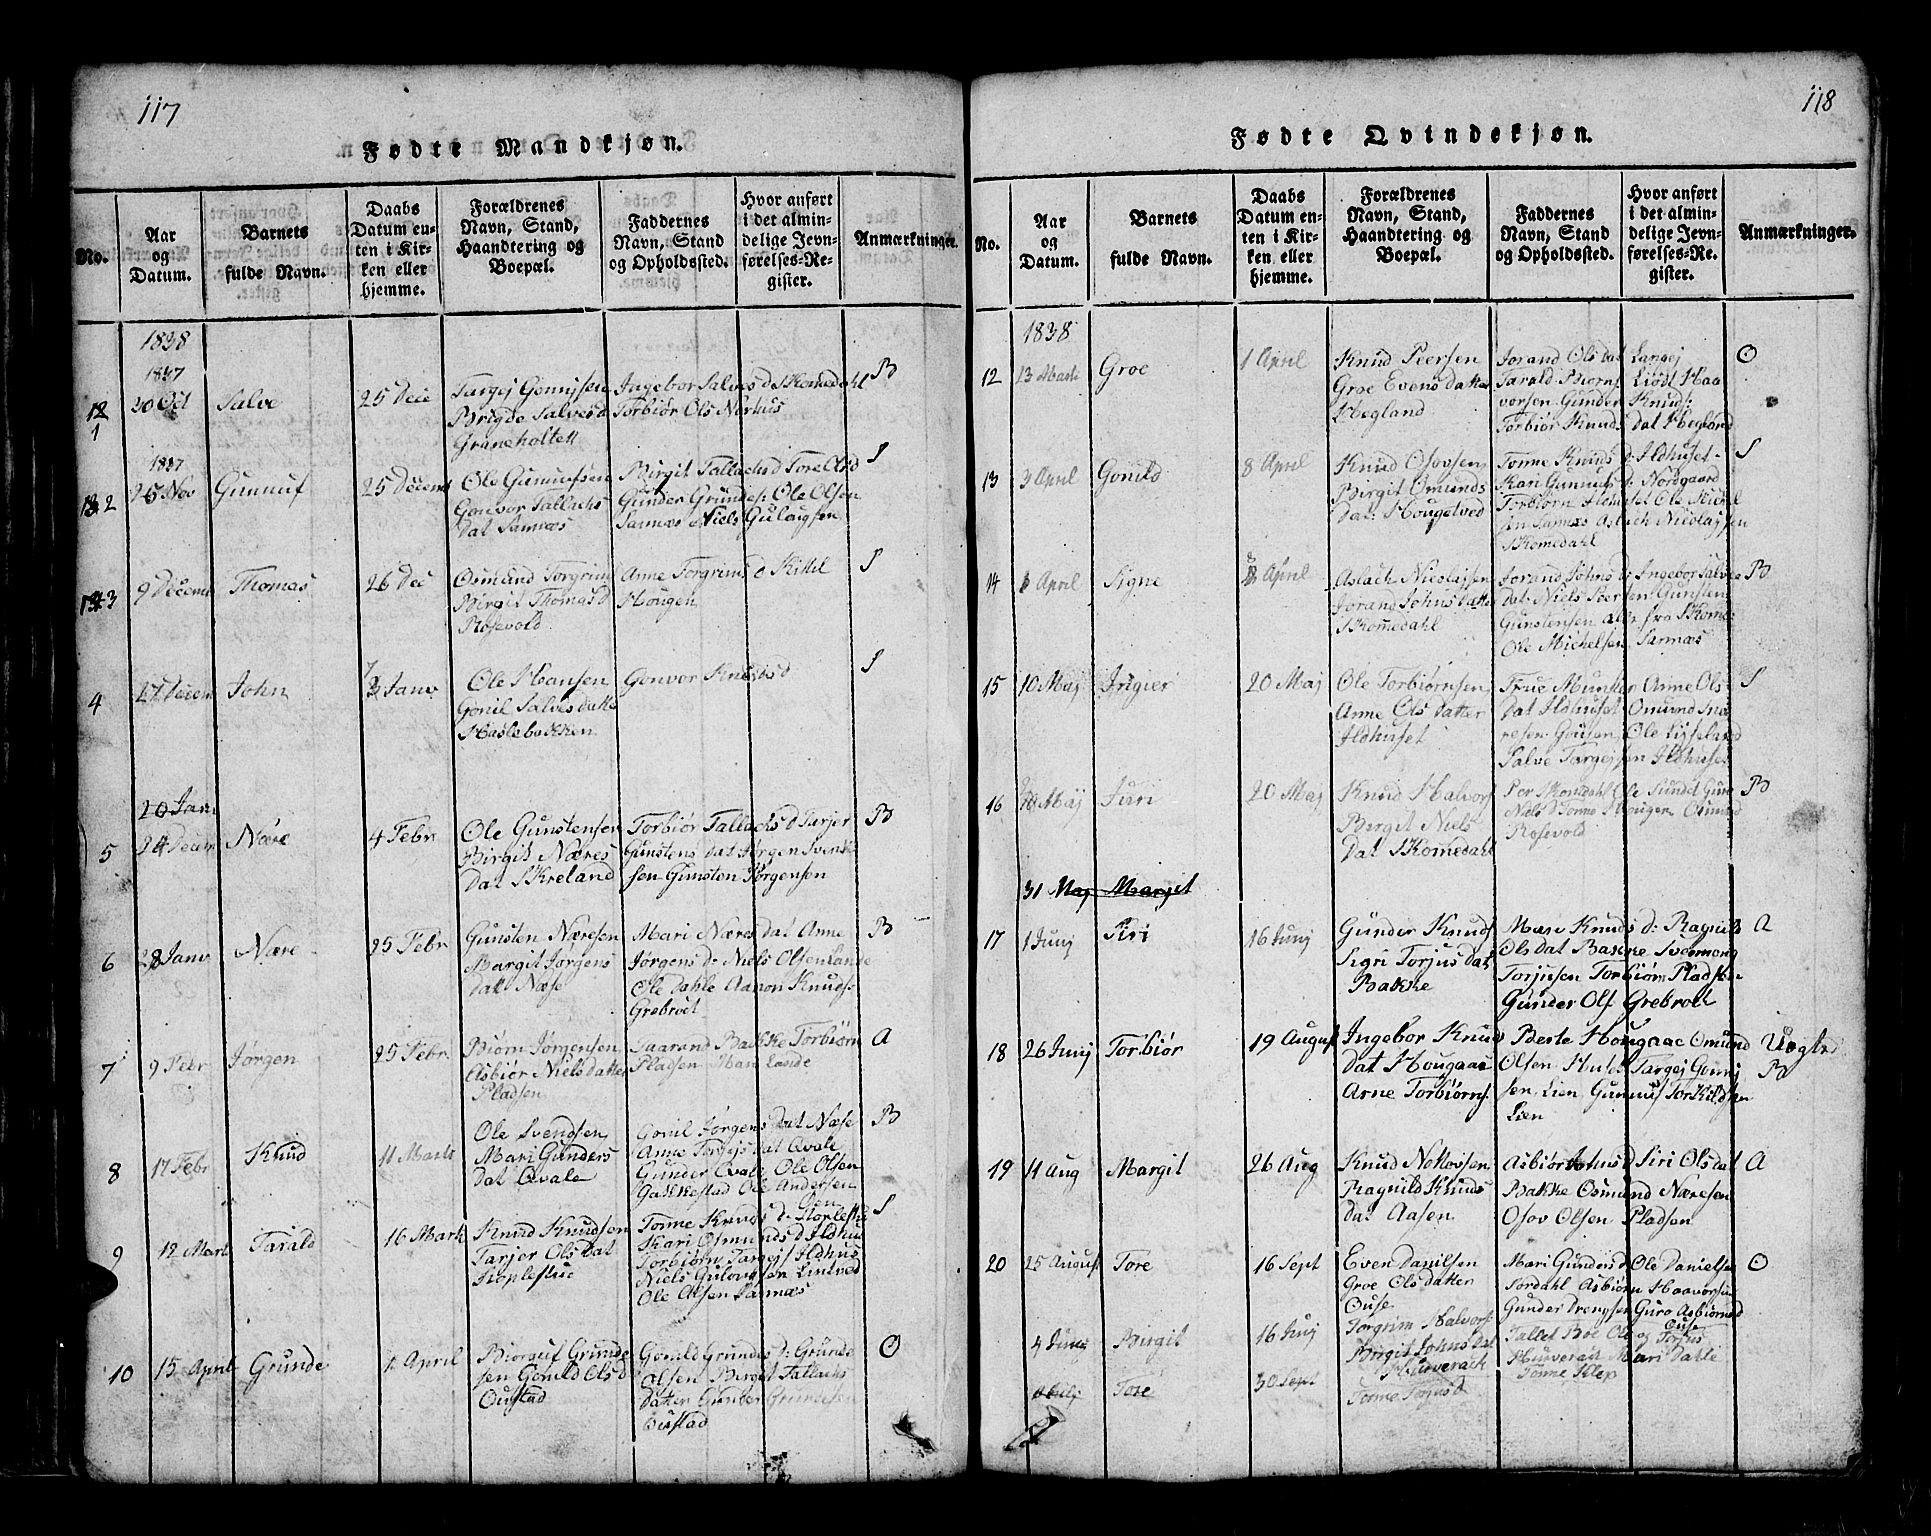 117
Fødte Mandkjøn.
No.
Aar
og
Datum.
Barnets
fulde Navn.
Daabs
Datum en-
ten i Kir-
ken eller
hjemme.
Forældrenes
Navn, Stand,
Haandtering og
Boepæl.
Faddernes
Navn, Stand
og Opholdssted.
Hvor anført
i det almin-
delige Jevn-
førelses-Re-
gister.
Anmærkninger.
1838
1837
1
30 Oct
Salve
25 Dece
Targej Gonnjsen
Brigde Salvesd
Graneholtett
Ingebor Salves d Skomedahl
Torbiør Ols Norhus
B
1837
2
26 Nov
Gunnuf
25 Decemb
Ole Gunnufsen
Gonvor Tallachs
dat Sannæs
Birgit Tallachsd Tore Olsd
Gunder Grundes: Ole Olsen
Sannæs Niels Gulaugsen
S
3
9 Decemb
Thomas
26 Dec
Osmund Torgrims
Birgit Thomasd
Rosevold
Anne Torgrims d Kittil
Hougen
S
4
27 Decem
John
Janv
Ole Hansen
Gonil Salvesdatts
Haslebakken
Gonvor Knudsd
S
20 Janv
5
24 Decem
Nære
4 Febr
Ole Gunstensen
Birgit Næres
dat Skreland
Torbiør Tallachsd Tarjer
Gunstens dat Jørgen Svend
sen Gunsten Jørgensen
B
6
28 Janv
Nære
25 Febr
Gunsten Næresen
Margit Jørgens
datt Næse
Mari Næres dat Anne
Jørgens d: Niels Olsen Lande
Ole Dahle Aanon Knuds:
Grebrodt
B
7
9 Febr
Jørgen
25 Febr.
Biørn Jørgensen
Asbiør Niels datter
Pladsen
Taarand Bakke Torbiørn
Pladsen Mari Lande
A
8
17 Febr
Knud
11 Marts
Ole Svendsen
Mari Gunders
dat Qvale
Gonil Jørgens dat Næse
Anne Torgejs dat Qvale
Gunder Qvale Ole Olsen
Gakkestad Ole Andersen
B
9
12 Mart
Tarald
16 Mark
Knud Knudsen
Tarjer Ols dat
Stoplestue
Tonne Knuds d: Stoplestue
Kari Osmunds d Ildhus
Torbiørn Targejs Ildhus
Niels Gulougsen Lintved
Ole Olsen Sannæs
S
10
15 April
Grunde
1 April
Biorguf Grunde
sen Gonild Ols d
Oustad
Gonuld Grundes d: Grunde
Olsen Bergit Tallachs
datter Gunder Grundesen
Oustad
O
118
Fødte Qvindekjøn.
No.
Aar
og
Datum.
Barnets
fulde Navn.
Daabs
Datum en-
ten i Kir-
ken eller
hjemme.
Forældrenes
Navn, Stand,
Haandtering og
Boepæl.
Faddernes
Navn, Stand
og Opholdssted.
Hvor anført
i det almin-
delige Jevn-
førelses-Re-
gister.
Anmærkninger.
1838
12
13 Marts
Groe
1 April
Knud Peersen
Groe Evens datter
Hegland
Jorand Ols dat Langej
Tarald Biorns Liødt Haa
vorsen Gunder Knuds:
Torbiør Knuds dat Hegland
O
13
3 April
Gonild
8 April
Knud Osovsen
Birgit Omunds
dat: Hougetved
Tonne Knuds d: Ildhuset
Kari Gunnufs d: Nordgaard
Torbiørn Ildhuset Ole Michel
sen Sannæs Aslach Nicolajsen
Skomedahl
S
14
April
Signe
8 April
Aslach Nicolajsen
Jorand Johns datter
Skomedahl
Jorand Johns d: Ingebor Salves
dat: Niels Peersen Gunsten
Gunstensen alle fra Skome:
Ole Michelsen Sannæs
B
15
10 Maj
Irigier
20 Maj
Ole Torbiørnsen
Anne Ols datter
Ildhuset
True Munkten Anne Ols-
dat Ildhuset Omund Snæ
resen Gousen Ole Lisseland
Salve Targejsen Ildhuset
S
16
Maj
Juri
20 Maj
Knud Halvors
Birgit Niels
dat Skomedahl
Per Skomdahl Ole Sundet Gun
Niels d Tonne Hougen Osmund
Rosevold
B
31 Maj Margit
17
1 Junj
Siri
16 Junj
Gunder Knuds
Sigri Torjus dat
Bakke
Mase Knuds d: Ragnild
Ols dat Bakke Svenning
Torjusen Torbiørn Pladsen
Gunder Ols Grebrodt
A
18
26 Junj
Torbiør
19 August
Ingebor Knud
dat Hougaae
Arne Torbiørns
Berte Hougaae Omund
Olsen Hulet Targej Gonnj
sen Lien Gunnuf Torkildsen
Lien
Uægte
B
19
11 Aug
Margit
26 Aug
Knud Nottovsen
Ragnild Knuds
dat Aasen
Asbiør Johns d Siri Ols dat
Bakke Osmund Næresen
Osov Olsen Pladsen
A
20
25 August
Tore
16 Sept
Even Danilsen
Groe Ols datter
Ouse
Mari Gunders d Ole Danielsen
Sordahl Asbiørn Haavorsen
Gunder Drengsen Guro Asbiørnsd
Ouse
O
4 Junj
Birgit
16 Junj
Torgrim Halvors
Birgit Johns dat
Hunverach
Tallet Bøe Ole og Torjus
Hunverach Mari Dahle
Tore
30 Sept
Tonne Torjusd
Tonne Klep